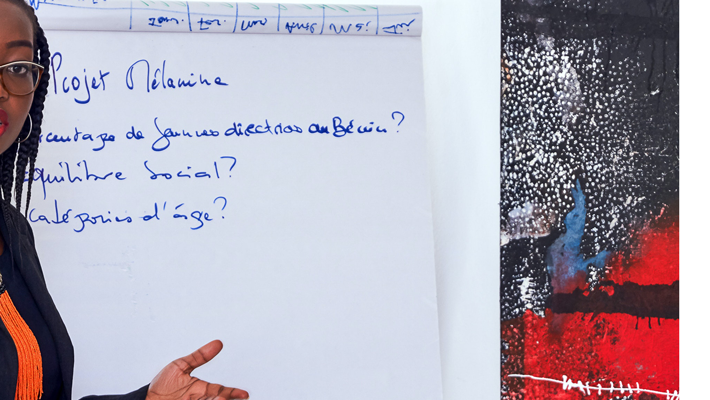 Projet Mélamine
rcentage de femmes directrices au Bénin?
quilibre Social?
catégories d'âge?